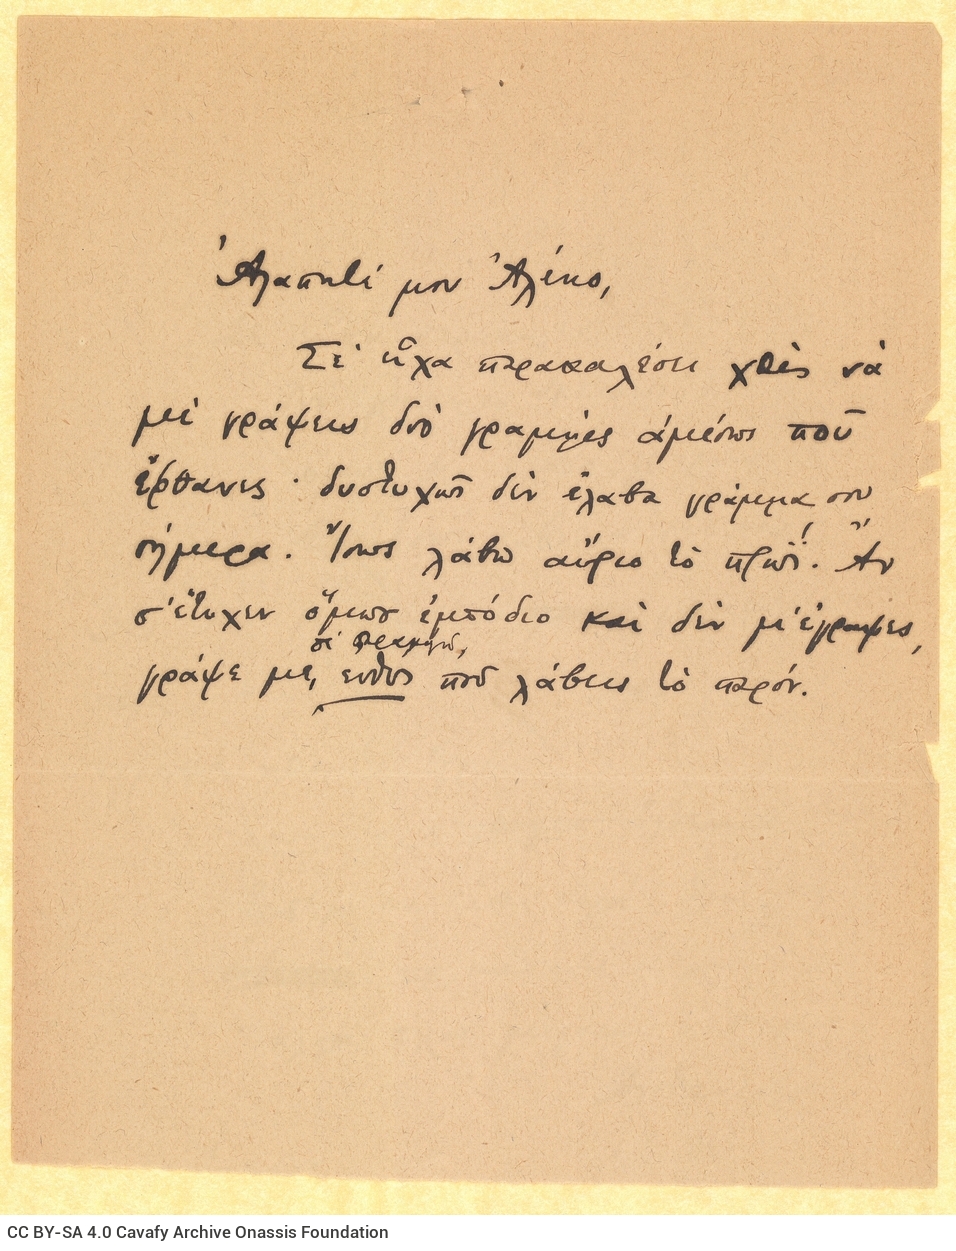 Ἀγαπητέ μου Ἀλέκο,
Σὲ εἶχα παρακαλέσει χθὲς νὰ
μὲ γράψεις δυὸ γραμμὲς ἀμέσως ποῦ
ἔφθανες· δυστυχῶς δὲν ἔλαβα γράμμα σου
σήμερα. Ἴσως λάβω αὔριο τὸ πρωΐ! Ἂν
σ' ἔτυχεν ὅμως ἐμπόδιο καὶ δὲν μ' ἔγραψες,
σὲ παρακαλῶ,
γράψε με, εὐθὺς ποῦ λάβεις τὸ παρόν.
CC BY-SA 4.0 Cavafy Archive Onassis Foundation